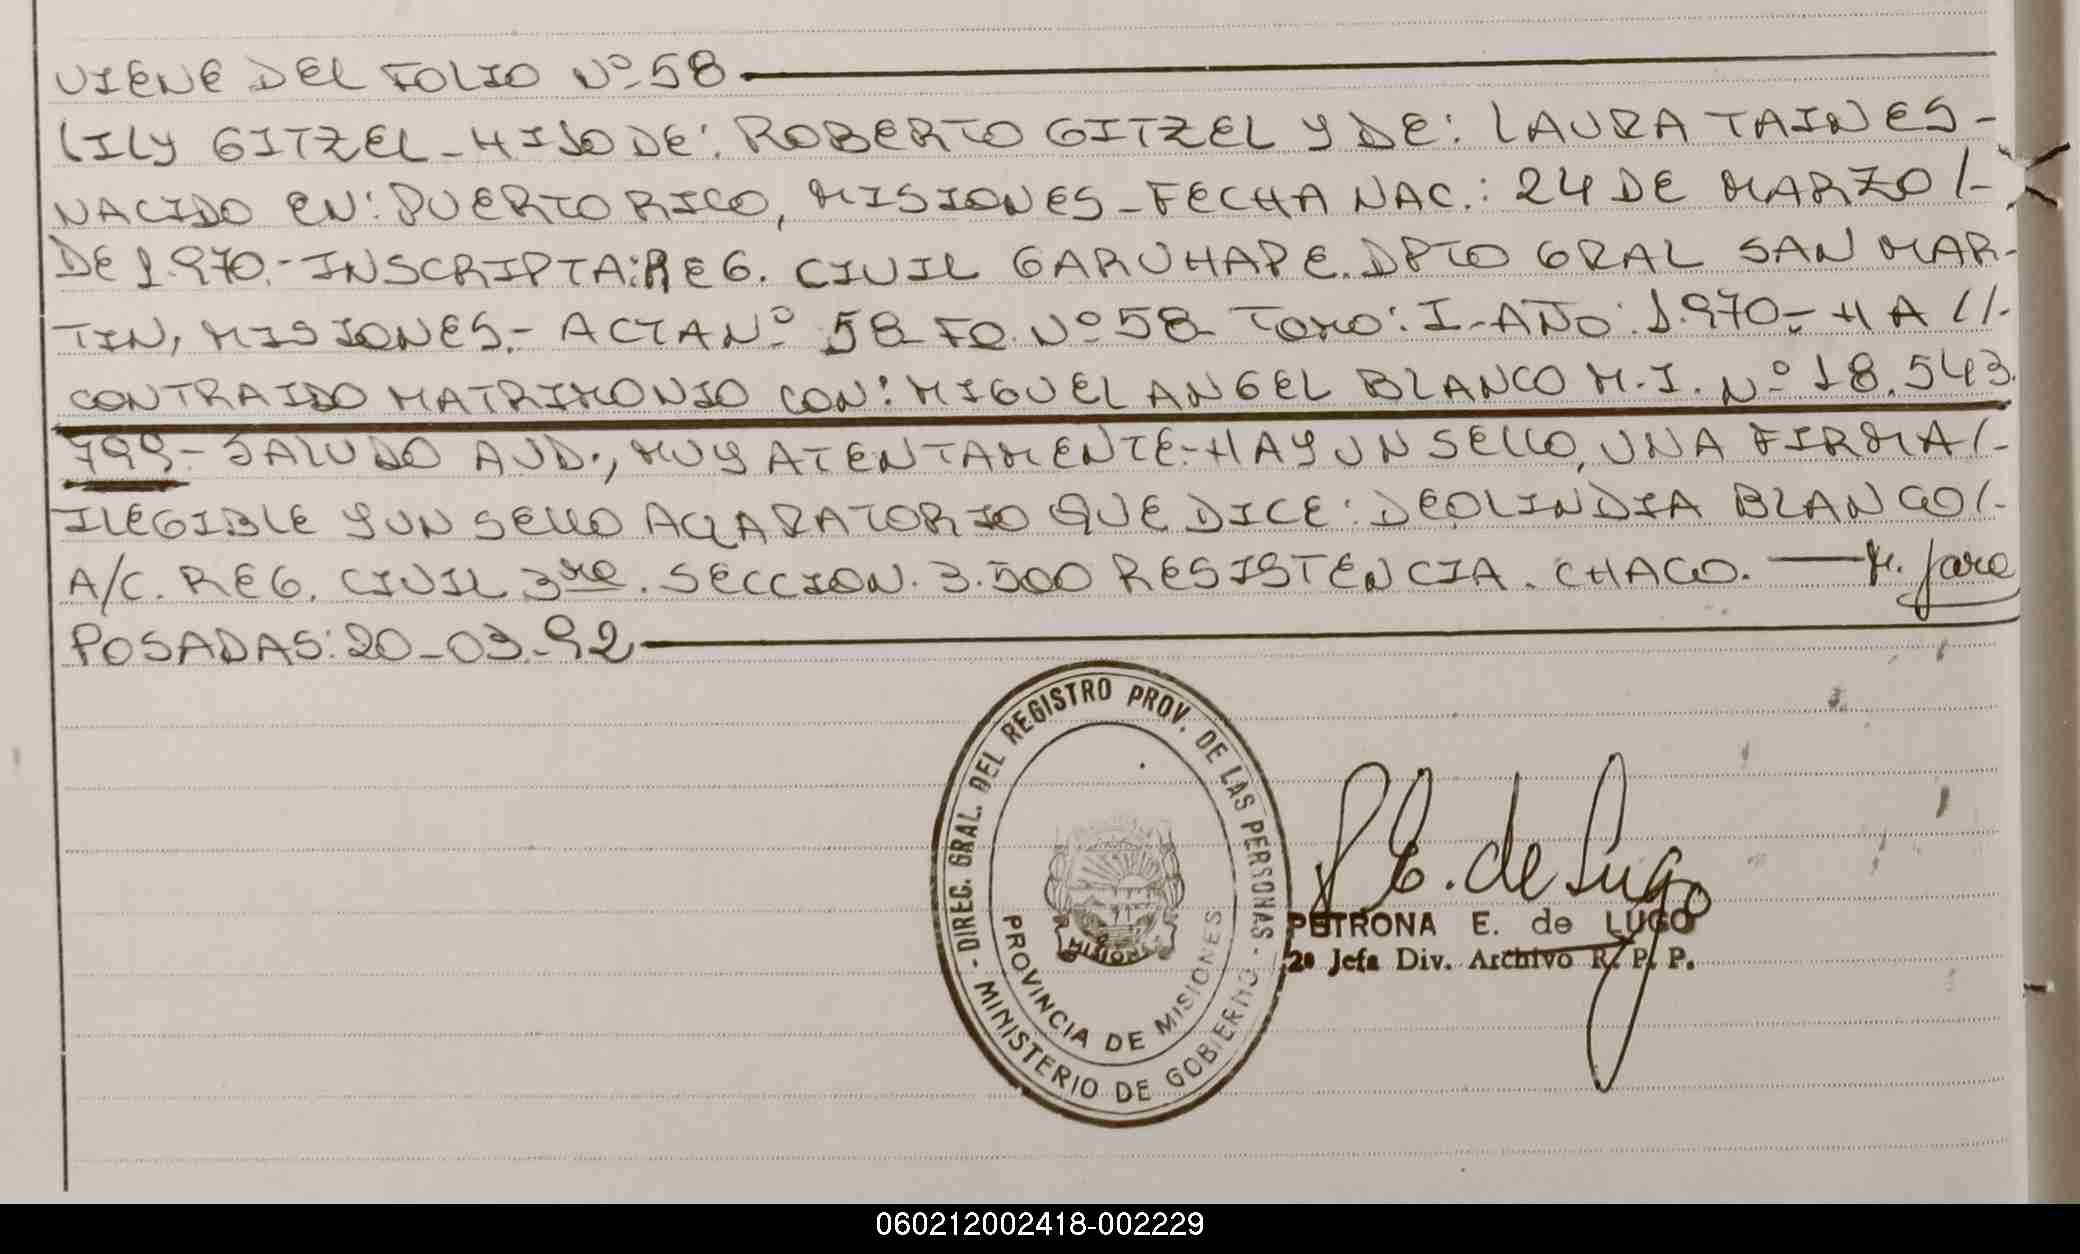 VIENE DEL FOLIO Nº 58
LILY GITZEL - HIJO DE: ROBERTO GITZEL Y DE: LAURA TAINES -
NACIDO EN: PUERTO RICO, MISIONES - FECHA NAC.: 24 DE MARZO /-
DE 1.970.- INSCRIPTA: REG. CIVIL GARUHAPE. DPTO GRAL SAN MAR-
TIN, MISIONES.- ACTA Nº 58 Fº. Nº 58 - TOMO: I - AÑO: 1.970.- HA //-
CONTRAIDO MATRIMONIO CON: MIGUEL ANGEL BLANCO M.I. Nº 18.543.
799 - SALUDO A UD., MUY ATENTAMENTE.- HAY UN SELLO, UNA FIRMA /-
ILEGIBLE Y UN SELLO ACLARATORIO QUE DICE: DEOLINDIA BLANCO /-
A/C. REG. CIVIL 3ra. SECCION. 3.500 RESISTENCIA. CHACO.
POSADAS: 20-03-92
- DIREC. GRAL. DEL REGISTRO PROV. DE LAS PERSONAS -
MINISTERIO DE GOBIERNO
PROVINCIA DE MISIONES
MISIONES
P E. de Lugo
PETRONA E. de LUGO
2º Jefa Div. Archivo R. P. P.
060212002418-002229